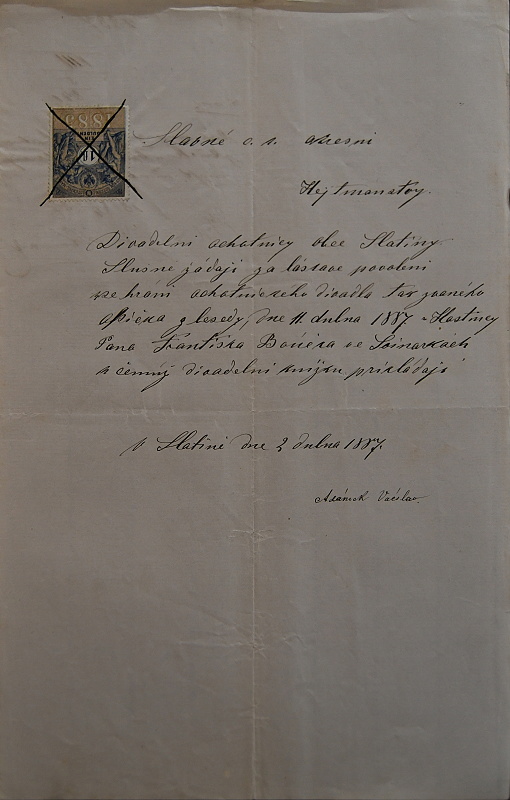 1885
Slavné c. k. okresní
Hejtmanství
Divadelní ochotnicy obce Slatiny
Slušně žádají za láskavé povolení
ke hraní ochotnického divadla tak zvaného
z besedy, dne 11. dubna 1887 v Hostincy
Pana Františka Boučka ve
k čemuž divadelní knížku přikládají
V Slatině dne 2 dubna 1887.
Adámek Václav